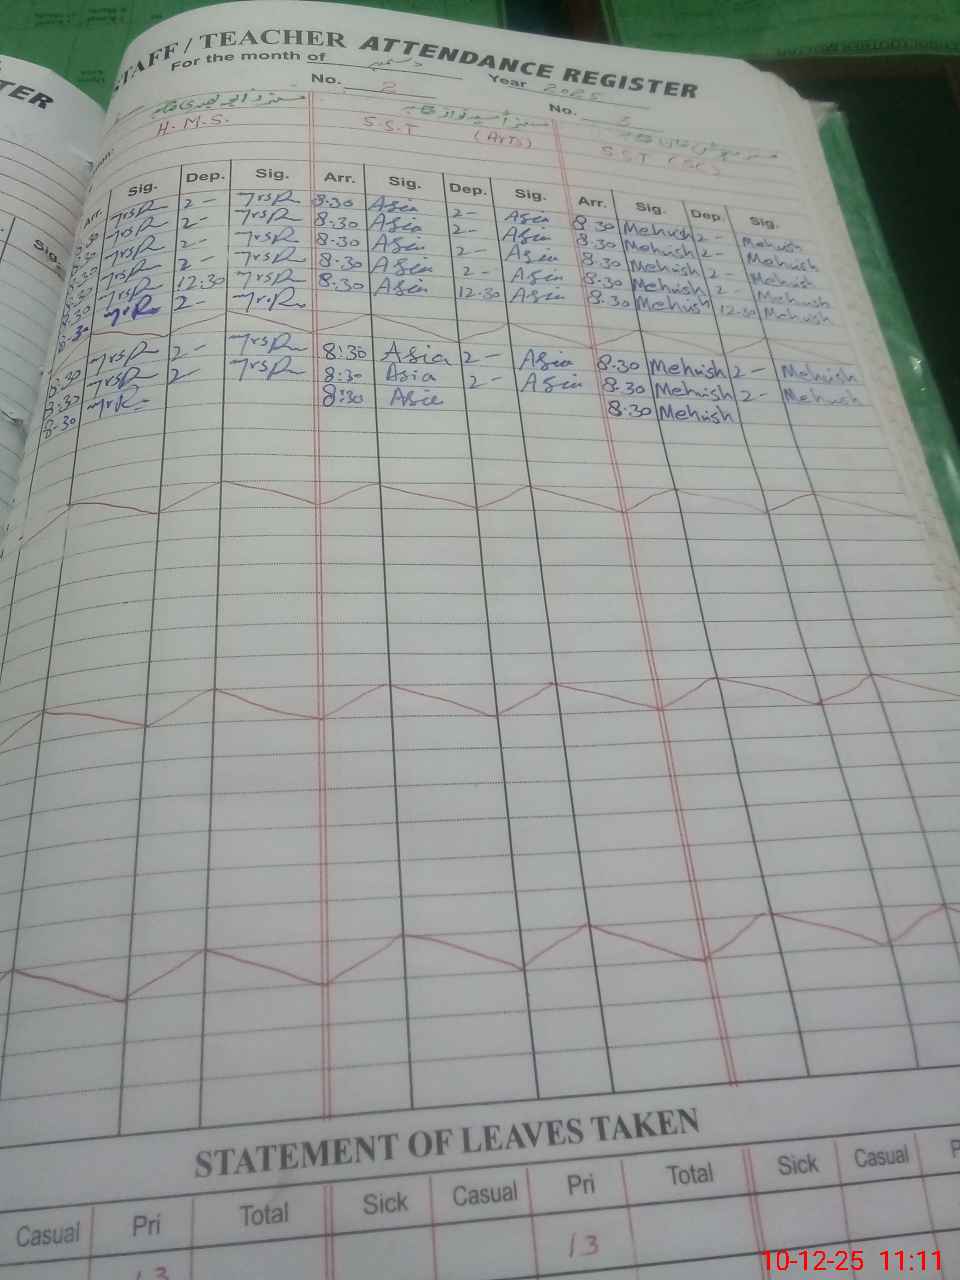 TER
STAFF / TEACHER ATTENDANCE REGISTER
For the month of دسمبر Year 2025
No. 2 No. 3
H.M.S. S.S.T (Arts) S.S.T (Sc)
Sig.
Arr. Sig. Dep. Sig. Arr. Sig. Dep. Sig. Arr. Sig. Dep. Sig.
8:30 2- 8:30 Asia 2- Asia 8:30 Mehwish 2- Mehwish
8:30 2- 8:30 Asia 2- Asia 8:30 Mehwish 2- Mehwish
8:30 2- 8:30 Asia 2- Asia 8:30 Mehwish 2- Mehwish
8:30 2- 8:30 Asia 2- Asia 8:30 Mehwish 2- Mehwish
8:30 12:30 8:30 Asia 12:30 Asia 8:30 Mehwish 12:30 Mehwish
8:30 2-
8:30 2- 8:30 Asia 2- Asia 8:30 Mehwish 2- Mehwish
8:30 2- 8:30 Asia 2- Asia 8:30 Mehwish 2- Mehwish
8:30 8:30 Asia 8:30 Mehwish
STATEMENT OF LEAVES TAKEN
Casual Pri Total Sick Casual Pri Total Sick Casual P
13 13
10-12-25 11:11